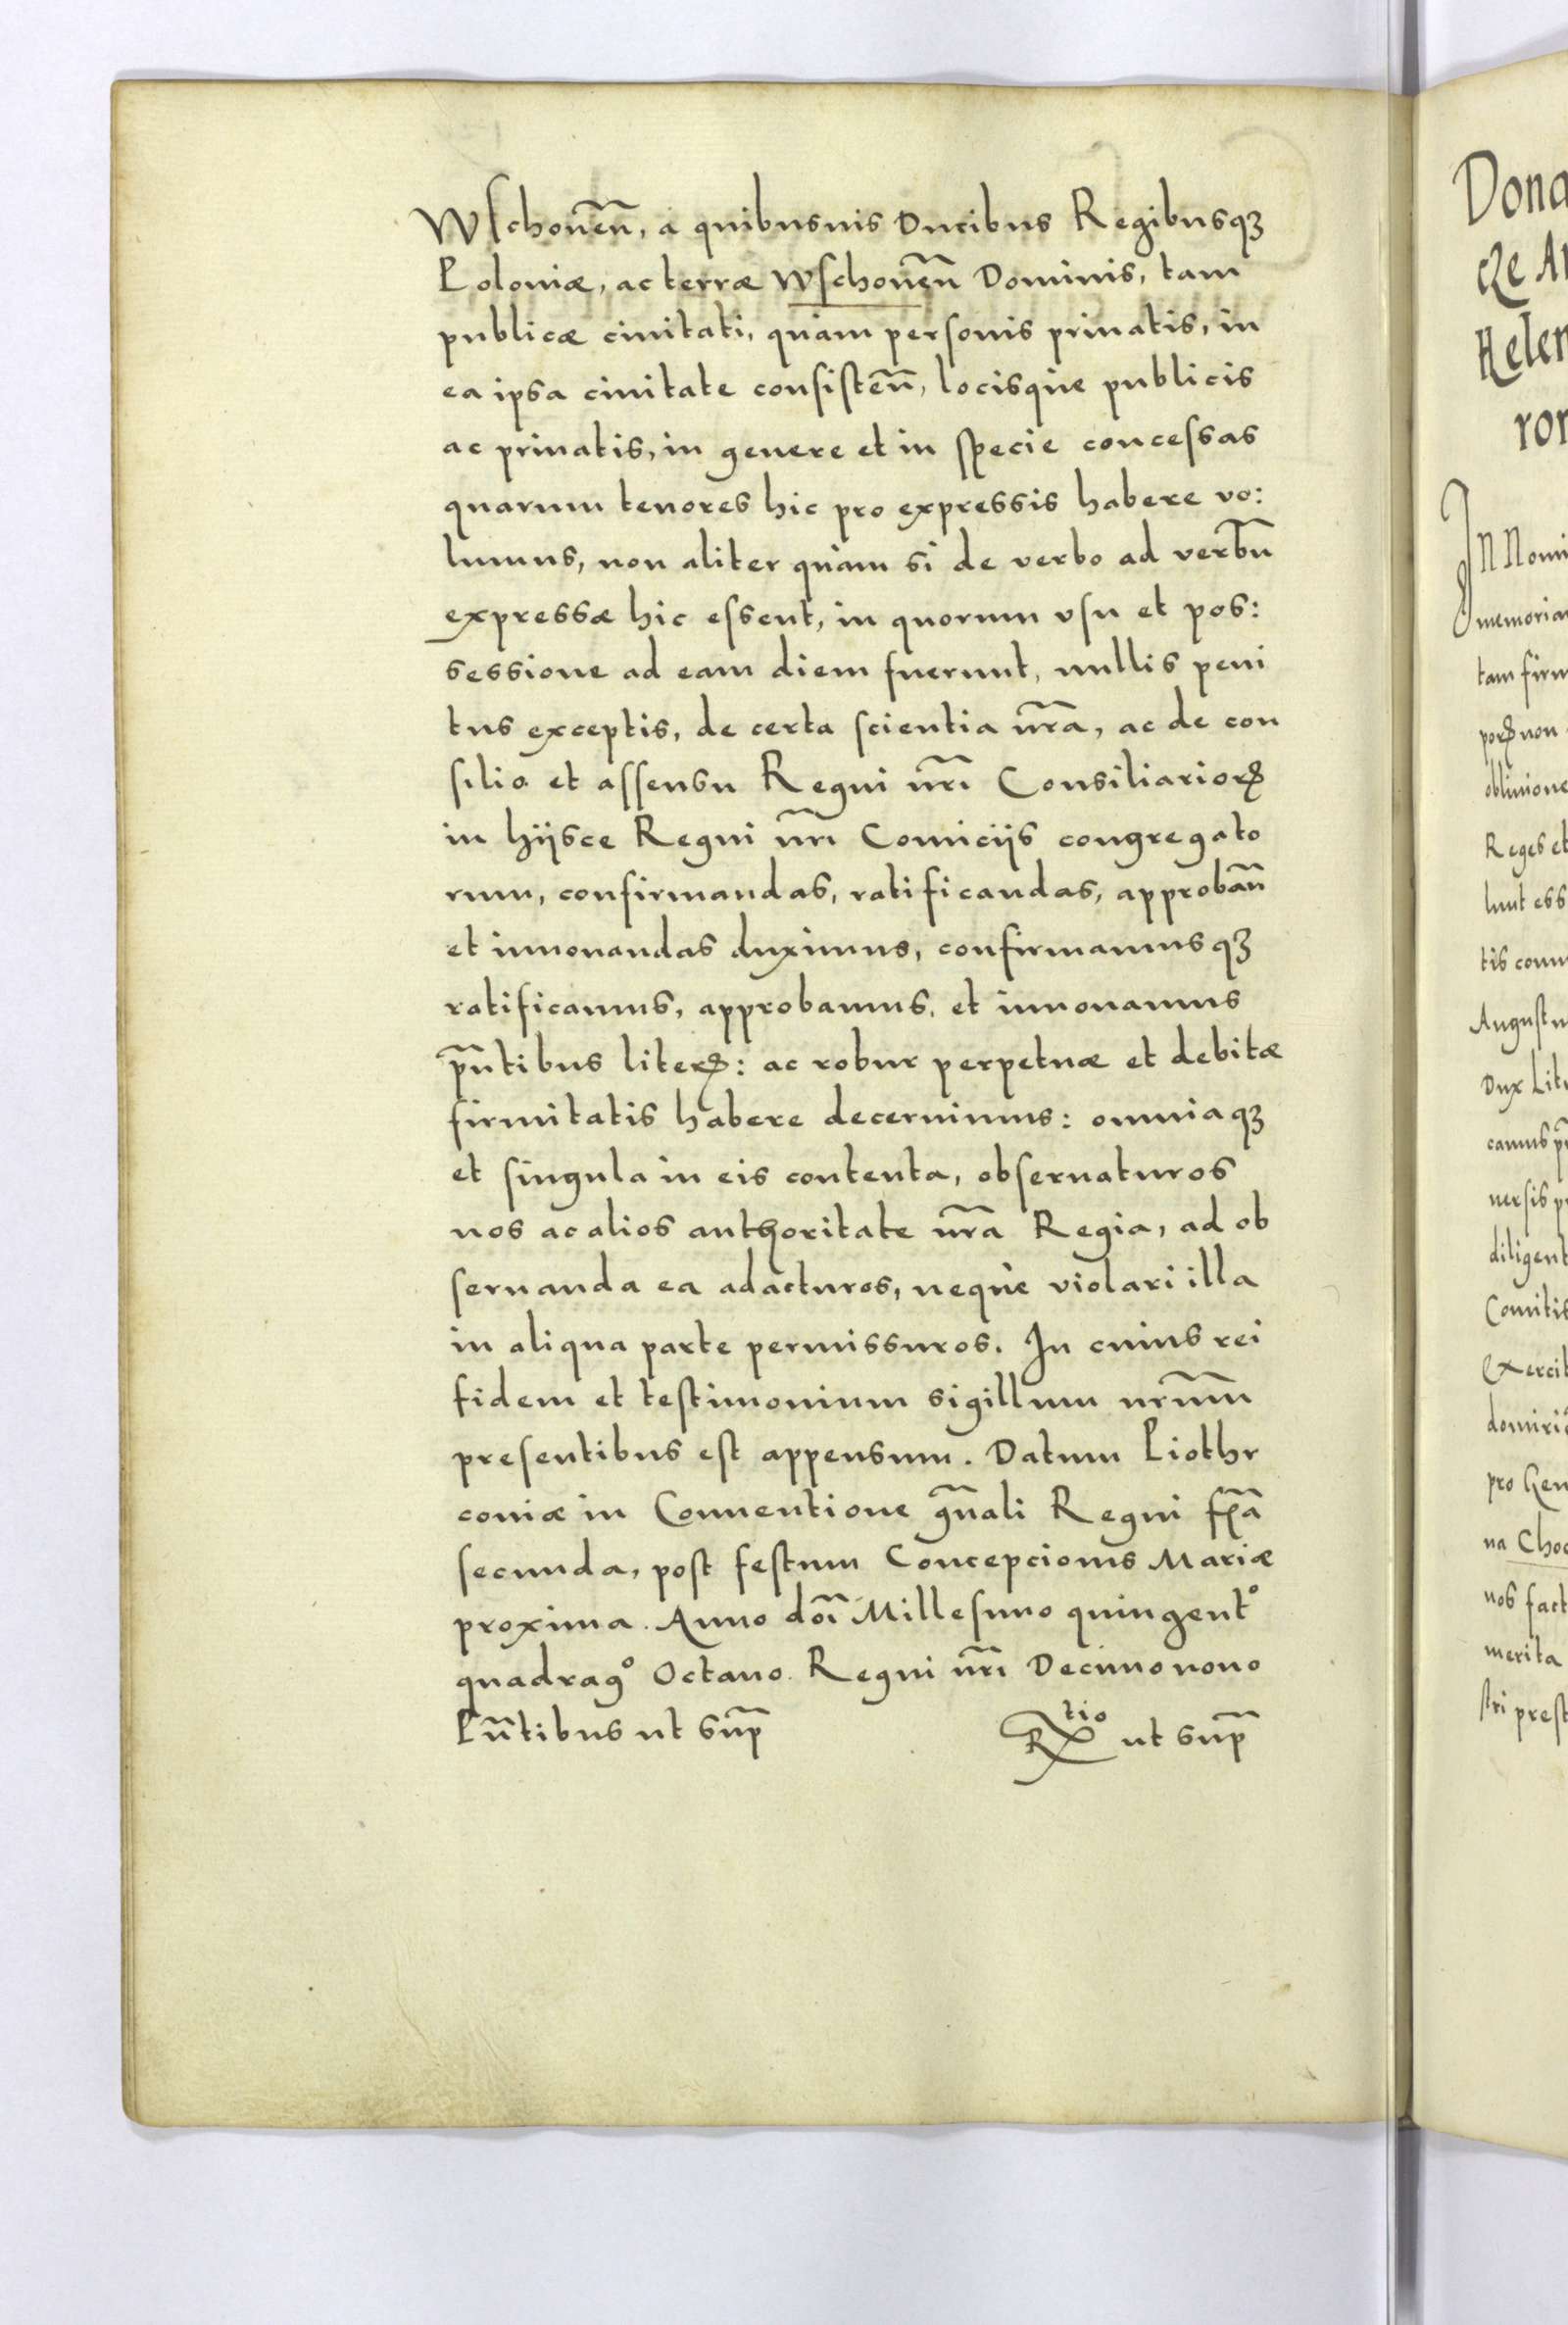 Wſchoueñ, à quibusuis Ducibus Regibusqꝫ
Poloniæ, ac terræ Wſchoueñ Dominis, tam
publicæ ciuitati, quàm perſonis priuatis, in
ea ipsa ciuitate conſiſteñ, locisque publicis
ac priuatis, in genere et in ſpecie conceſsas
quarum tenores hic pro expressis habere vo:
lumus, non aliter quàm si de verbo ad verbū
expressæ hic eſsent, in quorum vſu et pos:
sessione ad eam diem fuerunt, nullis peni
tus exceptis, de certa ſcientia nr̃a, ac de con
ſilio et aſſensu Regni nr̃i Consiliarioꝝ
in hijsce Regni nr̃i Comicijs congregato
rum, confirmandas, ratificandas, approbañ
et innouandas duximus, confirmamusqꝫ
ratificamus, approbamus, et innouamus
pñtibus literꝝ: ac robur perpetuæ et debitæ
firmitatis habere decernimus: omniaqꝫ
et ſingula in eis contenta, obſeruaturos
nos ac alios authoritate nr̃a Regia, ad ob
ſeruanda ea adacturos, neque violari illa
in aliqua parte permissuros. In cuius rei
fidem et teſtimonium sigillum nrũm
preſentibus eſt appensum. Datum Piothr
coniæ in Conuentione gñali Regni fr̃a
ſecunda, poſt feſtum Concepcionis Mariæ
proxima. Anno doī Milleſimo quingentº
quadragº Octauo. Regni nr̃i Decimo nono
Pñtibus ut sup̃
Rᵗⁱᵒ ut sup̃
Dona
Hele
In Nomi
memoria
tam firm
poꝝ non
obliuione
Reges et
lunt ess
tis comm
Auguſtu
Dux Lit
camus
uersis
diligent
Comitis
Exercit
pro Gen
na Choc
nos fact
merita
ſtri preſt